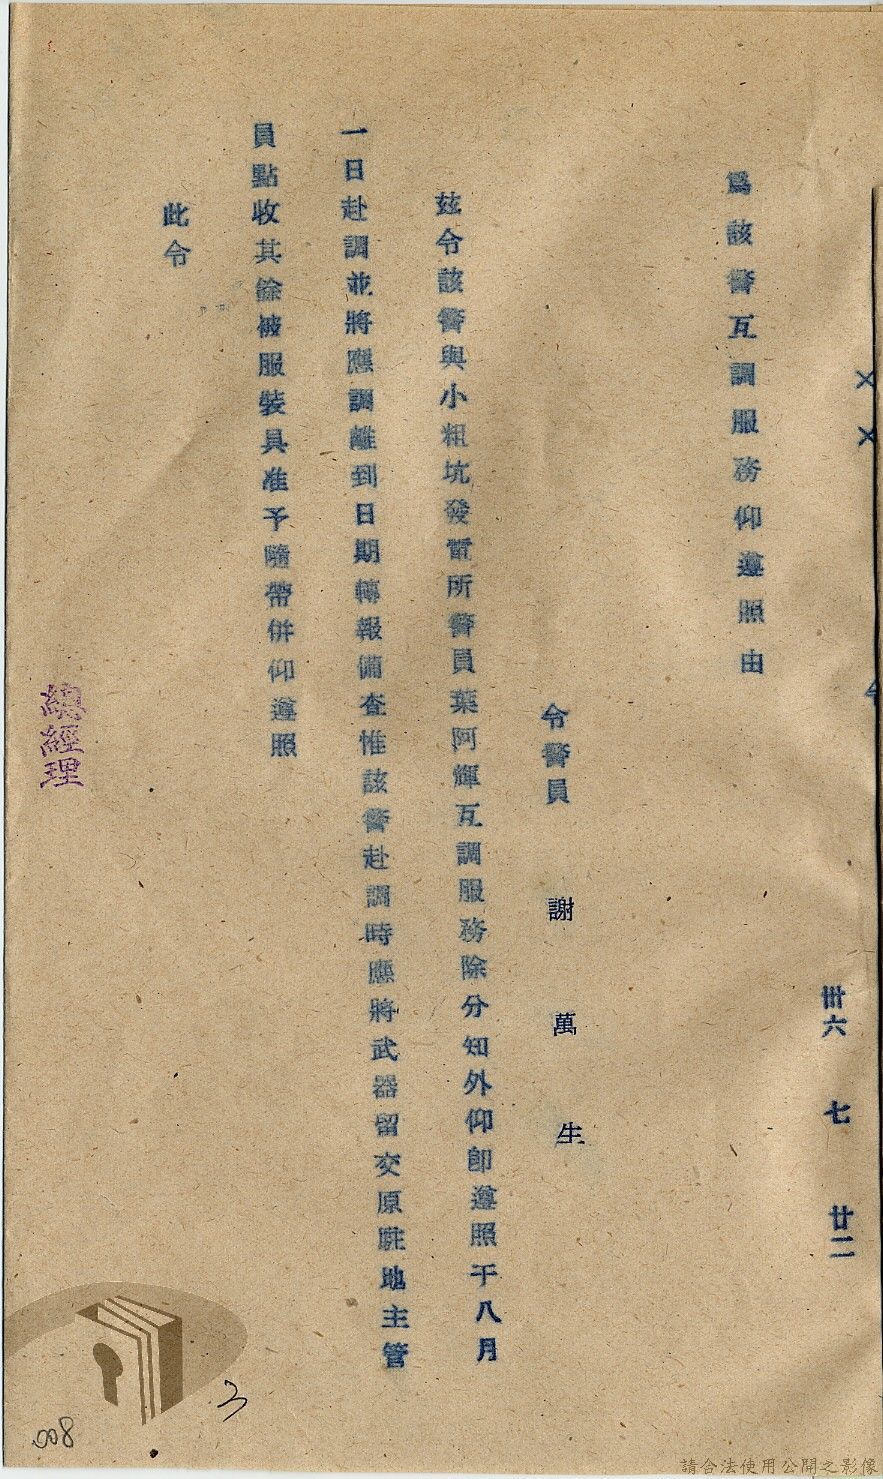 ××
卅六 七 廿二
為該警互調服務仰遵照由
令警員 謝萬生
玆令該警與小粗坑發電所警員葉阿輝互調服務除分知外仰卽遵照于八月
一日赴調並將應調離到日期轉報備查惟該警赴調時應將武器留交原駐地主管
員點收其餘被服裝具准予隨帶併仰遵照
此令
總經理
3
008
請合法使用公開之影像